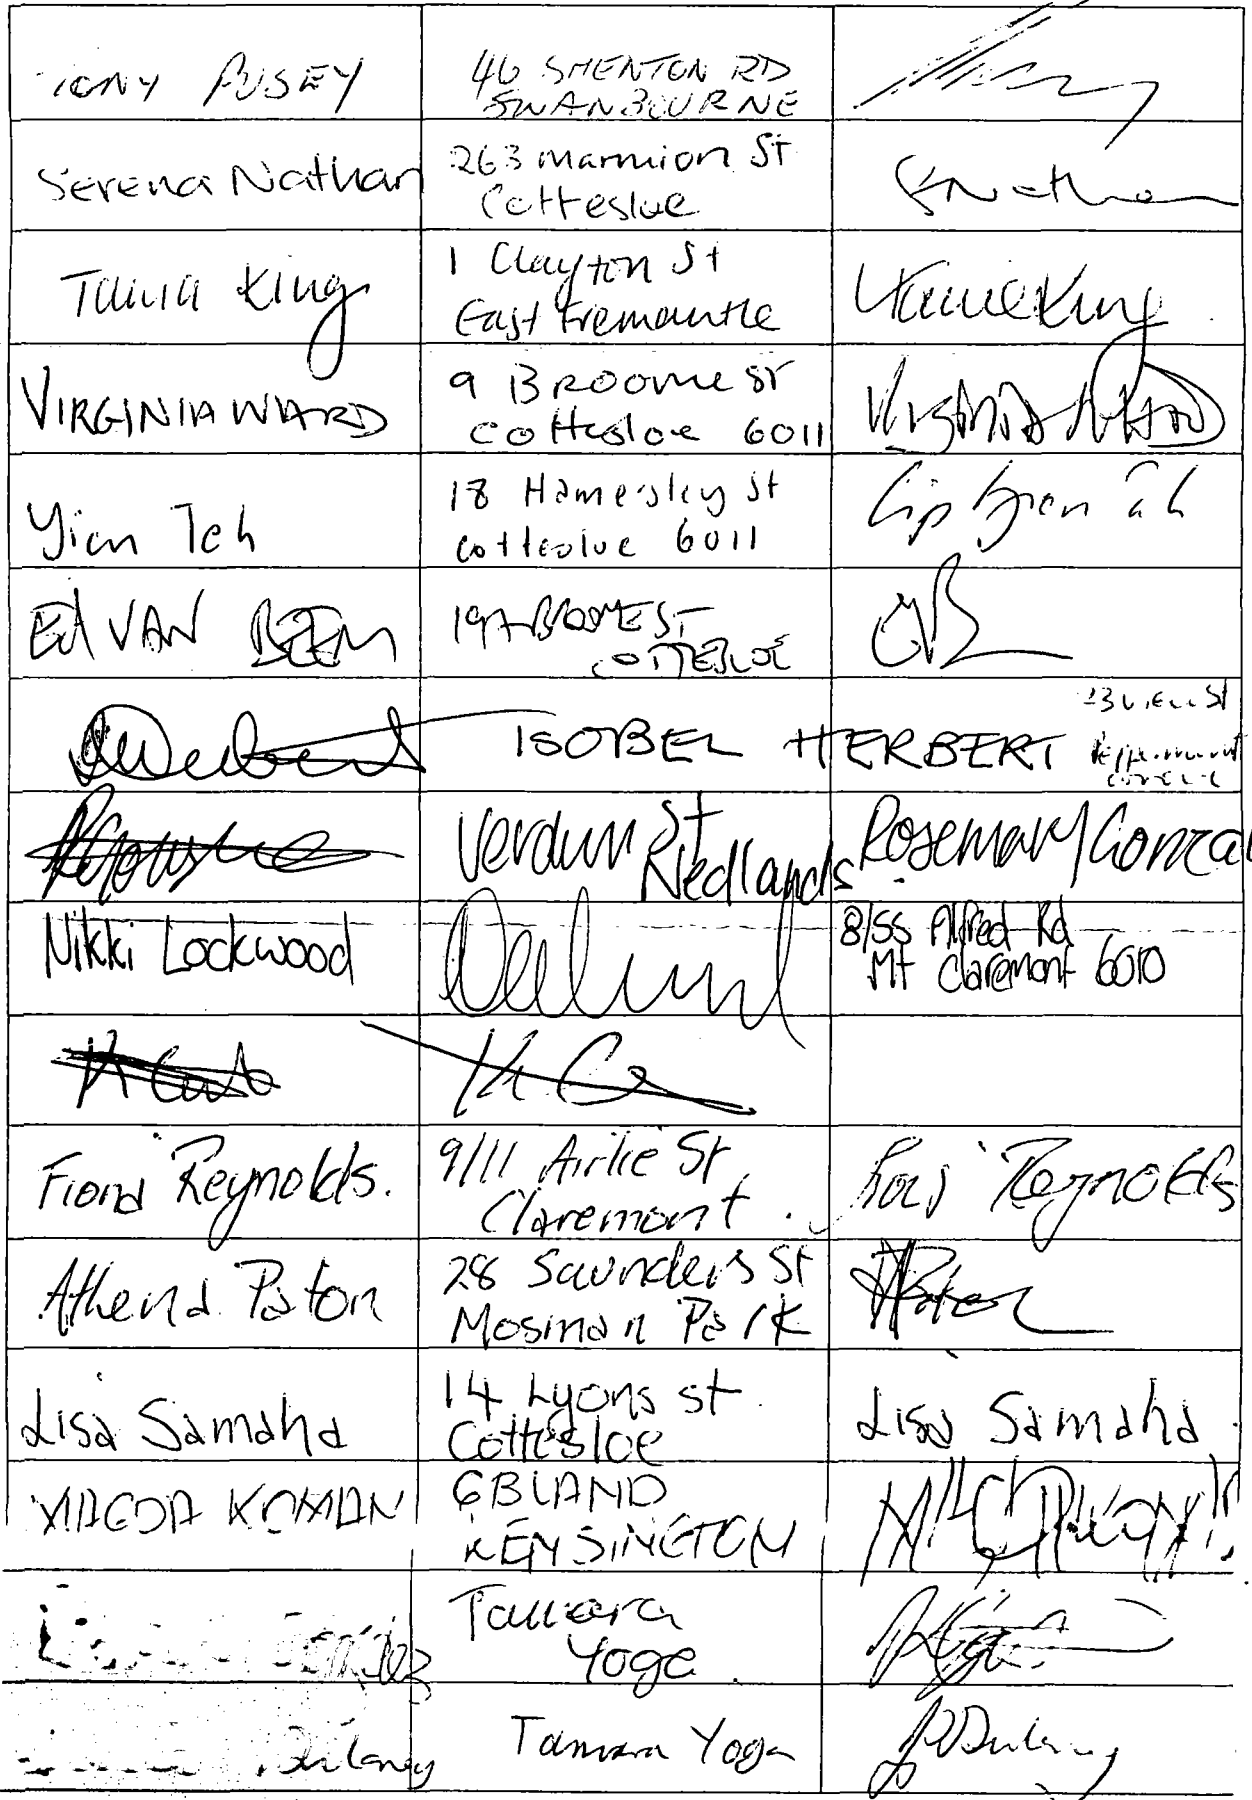 TONY PUSEY
46 SHENTON RD
SWANBOURNE
Serena Nathan
263 Marmion St
Cottesloe
SNathan
Tania King
1 Clayton St
East Fremantle
King
VIRGINIA WARD
9 BROOME ST
Cottesloe 6011
Virginia WARD
Yian Teh
18 Hamersley St
Cottesloe 6011
Ed VAN BEEM
197A BROOME ST
COTTESLOE
ISOBEL HERBERT
View St
Peppermint
Grove
Verdun St
Nedlands
Rosemary
Nikki Lockwood
8/55 Alfred Rd
Mt Claremont 6010
Fiona Reynolds.
9/11 Airlie St
Claremont.
Reynolds
Athena Paton
28 Saunders St
Mosman Park
Lisa Samaha
14 Lyons St
Cottesloe
Lisa Samaha
MAGDA KOMAN
6 BLAND
KENSINGTON
Tamara
Yoga
Tamara Yoga